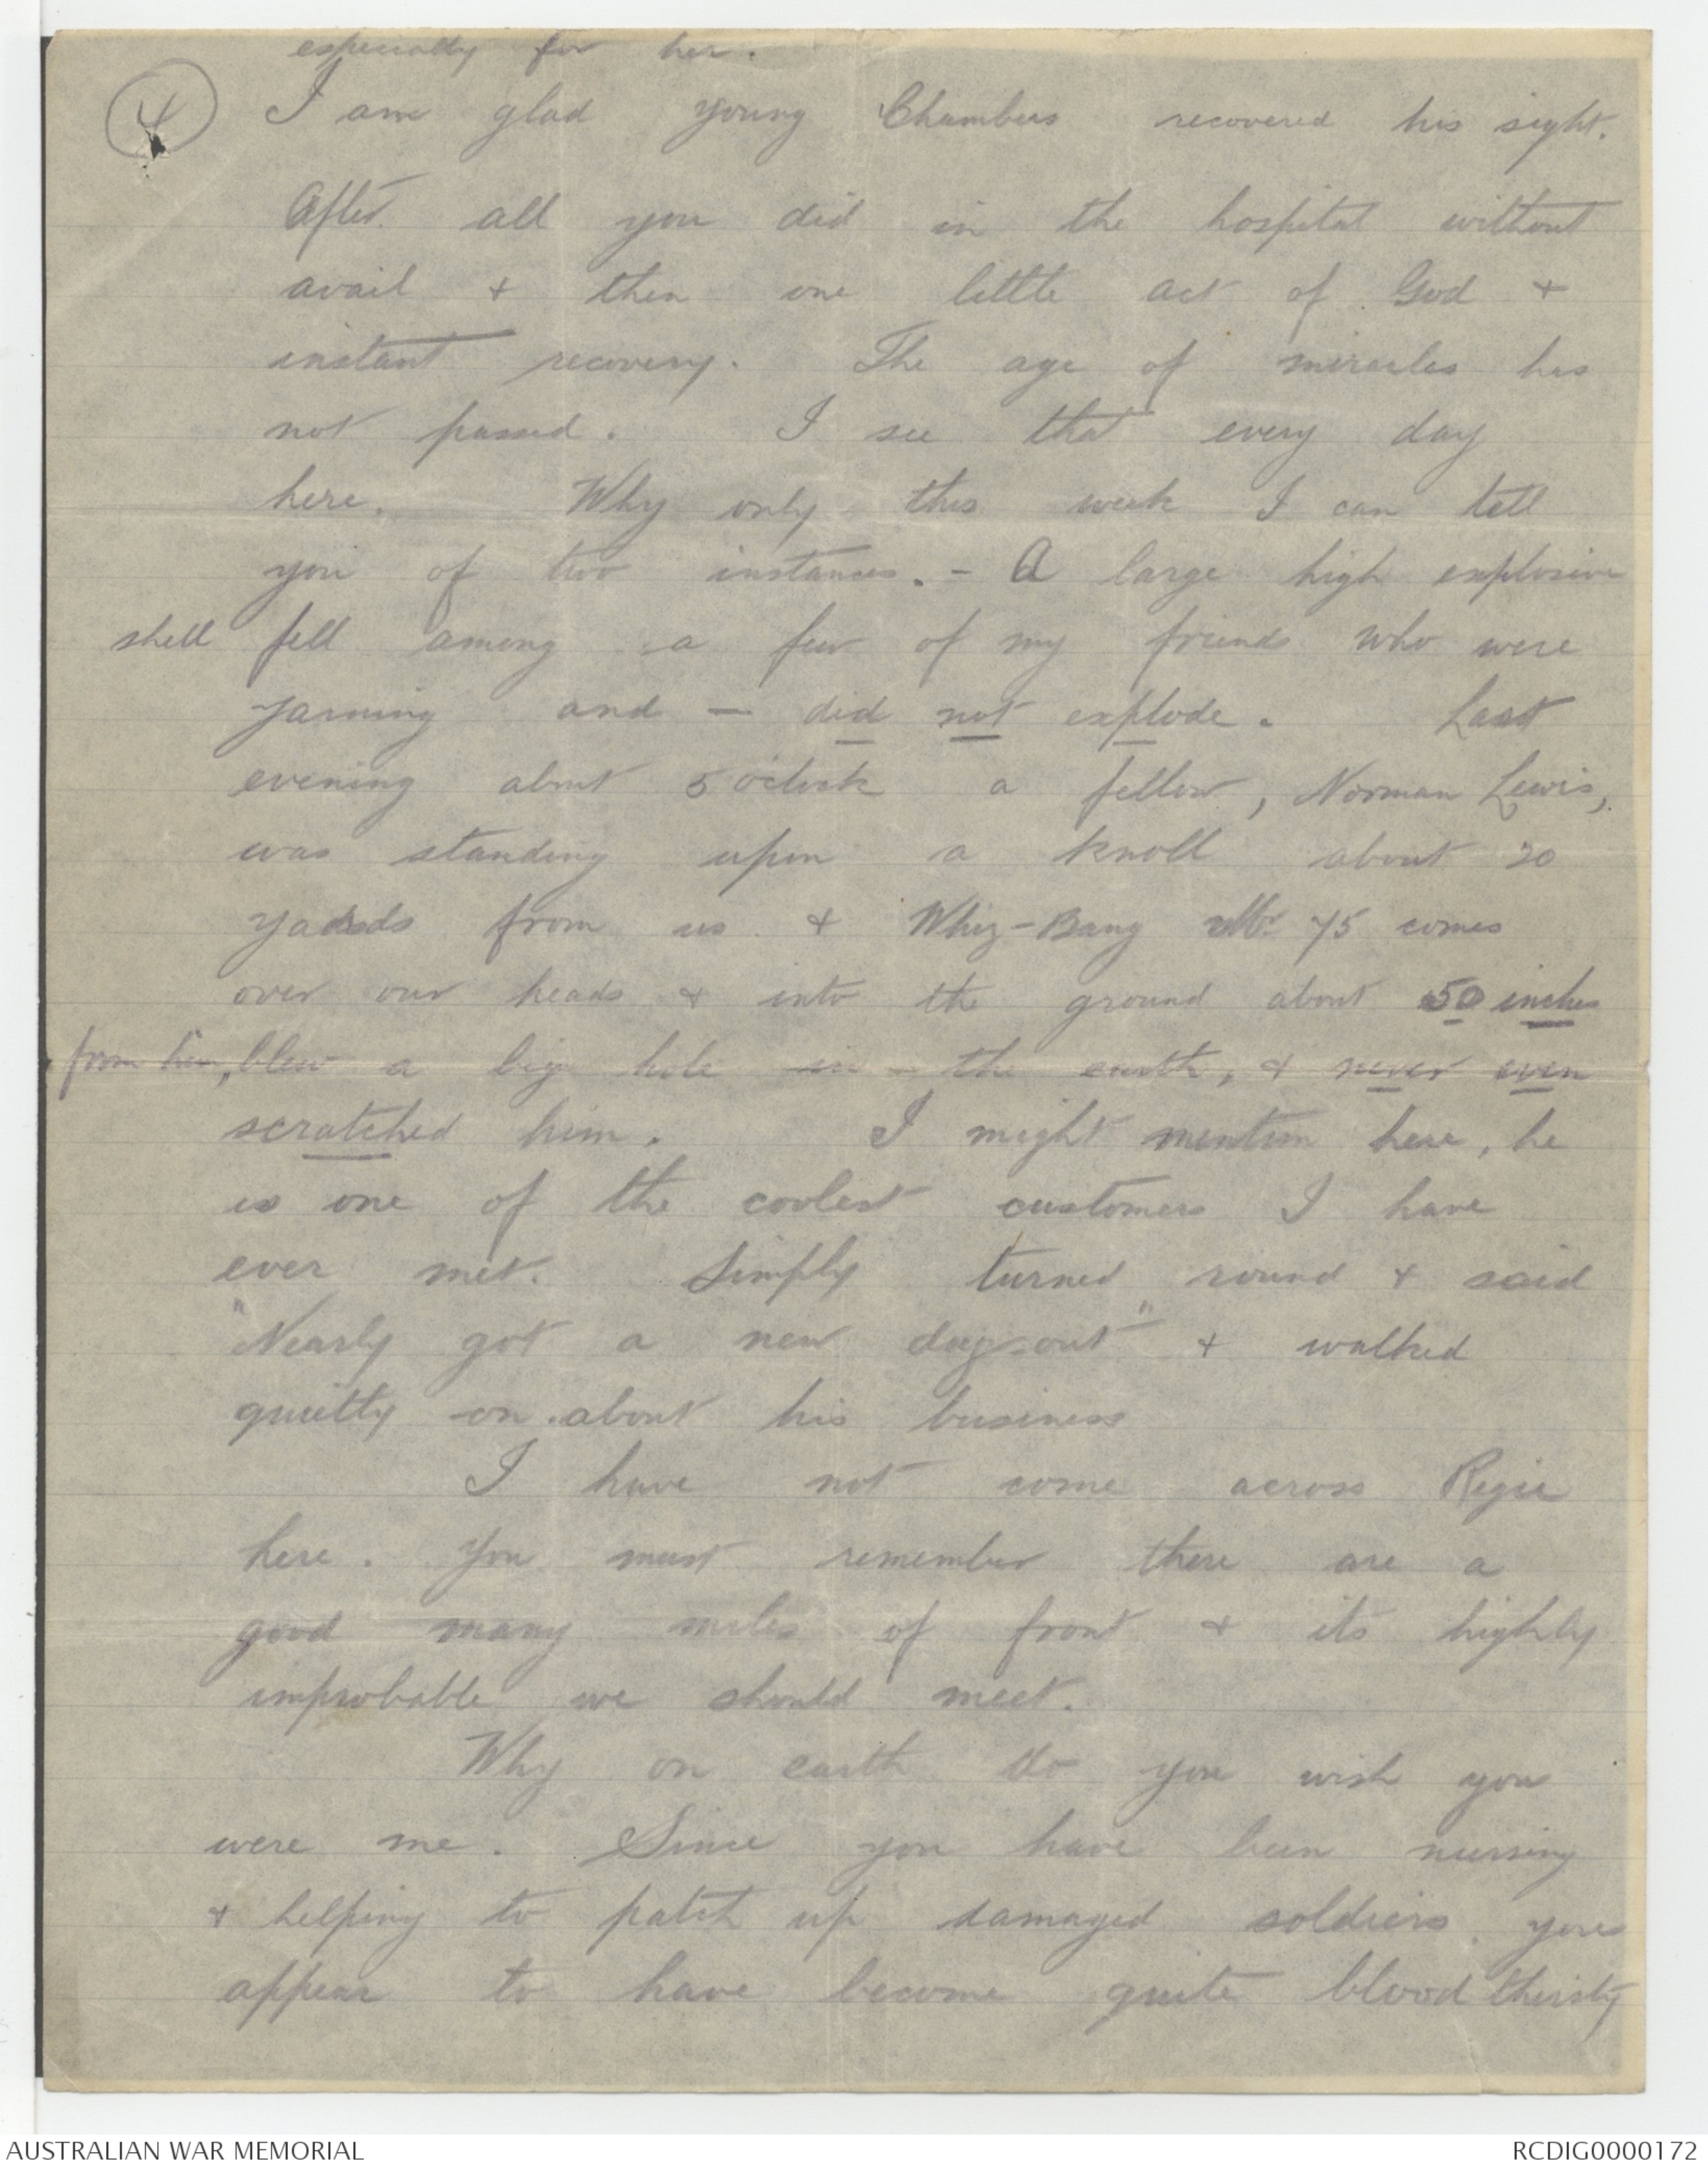 especially for her.
4
I am glad young Chambers recovered his sight.
After all you did in the hospital without
avail & then one little act of God &
instant recovery. The age of miracles has
not passed. I see that every day
here. Why only this week I can tell
you of two instances. - A large high explosive
shell fell among a few of my friends who were
yarning and — did not explode. Last
evening about 5 o'clock a fellow, Norman Lewis,
was standing upon a knoll about 20
yards from us & Whiz-Bang 75 comes
over our heads & into the ground about 50 inches
from him, blew a big hole in the earth, & never even
scratched him. I might mention here, he
is one of the coolest customers I have
ever met. Simply turned round & said
"Nearly got a new dug-out" & walked
quietly on about his business
I have not come across Regie
here. You must remember there are a
good many miles of front & its highly
improbable we should meet.
Why on earth do you wish you
were me. Since you have been nursing
& helping to patch up damaged soldiers you
appear to have become quite blood thirsty
AUSTRALIAN WAR MEMORIAL
RCDIG0000172